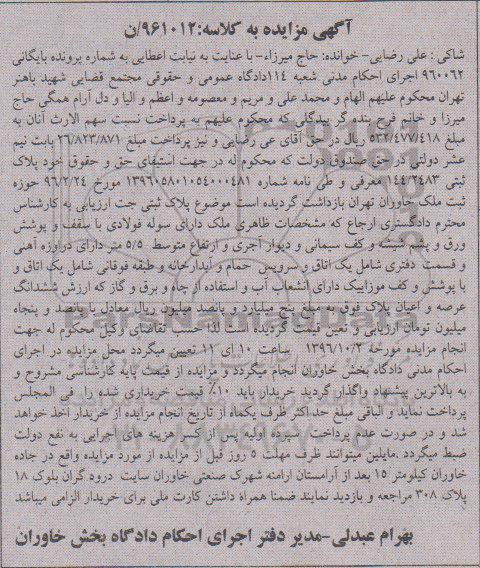 آگهی مزایده به کلاسه:۹۶۱۰۱۲/ن
شاکی : علی رضایی- خوانده: حاج میرزاء- با عنایت به نیابت اعطایی به شماره پرونده بایگانی
۹۶۰۰۶۲ اجرای احکام مدنی شعبه ۱۱۴دادگاه عمومی و حقوقی مجتمع قضایی شهید باهنر
تهران محکوم علیهم الهام و محمد علی و مریم و معصومه و اعظم و الیا و دل آرام همگی حاج
میرزا و خانم فرح بنده گر بیدگلی که محکوم علیهم به پرداخت نسبت سهم الارث آنان به
مبلغ ۵۳۶/۴۷۷/۴۱۸ ریال در حق آقای عی رضایی و نیز پرداخت مبلغ ۲۶/۸۲۳/۸۷۱ بابت نیم
عشر دولتی در حق صندوق دولت که محکوم له در جهت استیفای حق و حقوق خود پلاک
ثبتی ۱۴۴/۲۴۸۳ معرفی و طی نامه شماره ۱۳۹۶۰۵۸۰۱۰۵۴۰۰۰۴۸۱ مورخ ۹۶/۲/۲۴ حوزه
ثبت ملک خاوران تهران بازداشت گردیده است موضوع پلاک ثبتی جت ارزیابی به کارشناس
محترم دادگستری ارجاع که مشخصات ظاهری ملک دارای سوله فولادی با سقف و پوشش
ورق و پشم شیشه و کف سیمانی و دیوار آجری و ارتفاع متوسط ۵/۵ متر دارای دروازه آهنی
و قسمت دفتری شامل یک اتاق و سرویس حمام و آبدارخانه و طبقه فوقانی شامل یک اتاق و
با پوشش و کف موزاییک دارای انشعاب آب و استفاده از چاه و برق و گاز که ارزش ششدانگ
عرصه و اعیان پلاک فوق به مبلغ پنج میلیارد و پانصد میلیون ریال معادل پانصد و پنجاه
میلیون تومان ارزیابی و تعین قیمت گردیده است لذا حسب تقاضای وکیل محکوم له جهت
انجام مزایده مورخه ۱۳۹۶/۱۰/۲ ساعت ۱۰ الی ۱۱ تعیین میگردد محل مزایده در اجرای
احکام مدنی دادگاه بخش خاوران انجام میگردد و مزایده از قیمت پایه کارشناسی مشروح و
به بالاترین پیشنهاد واگذار گردید خریدار باید ۱۰٪ قیمت خریداری شده را فی المجلس
پرداخت نماید و الباقی مبلغ حداکثر ظرف یکماه از تاریخ انجام مزایده از خریدار اخذ خواهد
شد و در صورت عدم پرداخت سپرده اولیه پس از کسر هزینه های اجرایی به نفع دولت
ضبط میگردد .مایلین میتوانند ظرف مهلت ۵ روز قبل از مزایده از مورد مزایده واقع در جاده
خاوران کیلومتر ۱۵ بعد از آرامستان ارامنه شهرک صنعتی خاوران سایت درود گران بلوک ۱۸
پلاک ۳۰۸ مراجعه و بازدید نمایند ضمنا همراه داشتن کارت ملی برای خریدار الزامی میباشد
بهرام عبدلی-مدیر دفتر اجرای احکام دادگاه بخش خاوران